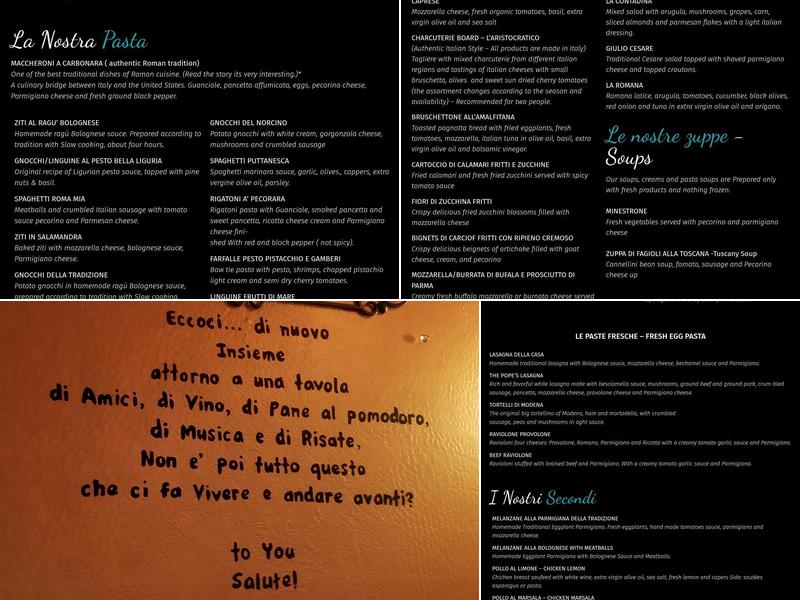 La Nostra Pasta
MACCHERONI A CARBONARA ( authentic Roman tradition)
One of the best traditional dishes of Roman cuisine. (Read the story its very interesting.)*
A culinary bridge between Italy and the United States. Guanciale, pancetta affumicata, eggs, pecorino cheese,
Parmigiano cheese and fresh ground black pepper.
ZITI AL RAGU' BOLOGNESE
Homemade ragù Bolognese sauce. Prepared according to
tradition with Slow cooking, about four hours.
GNOCCHI/LINGUINE AL PESTO BELLA LIGURIA
Original recipe of Ligurian pesto sauce, topped with pine
nuts & basil.
SPAGHETTI ROMA MIA
Meatballs and crumbled Italian sausage with tomato
sauce pecorino and Parmesan cheese.
ZITI IN SALAMANDRA
Baked ziti with mozzarella cheese, bolognese sauce,
Parmigiano cheese.
GNOCCHI DELLA TRADIZIONE
Potato gnocchi in homemade ragù Bolognese sauce,
prepared according to tradition with Slow cooking.
GNOCCHI DEL NORCINO
Potato gnocchi with white cream, gorgonzola cheese,
mushrooms and crumbled sausage
SPAGHETTI PUTTANESCA
Spaghetti marinara sauce, garlic, olives., coppers, extra
vergine olive oil, parsley.
RIGATONI A' PECORARA
Rigatoni pasta with Guanciale, smoked pancetta and
sweet pancetta, ricotta cheese cream and Parmigiano
cheese fini-
shed With red and black pepper ( not spicy).
FARFALLE PESTO PISTACCHIO E GAMBERI
Bow tie pasta with pesto, shrimps, chopped pistachio
light cream and semi dry cherry tomatoes.
LINGUINE FRUTTI DI MARE
CAPRESE
Mozzarella cheese, fresh organic tomatoes, basil, extra
virgin olive oil and sea salt
CHARCUTERIE BOARD – L'ARISTOCRATICO
(Authentic Italian Style – All products are made in Italy)
Tagliere with mixed charcuterie from different Italian
regions and tastings of Italian cheeses with small
bruschetta, olives and sweet sun dried cherry tomatoes
(the assortment changes according to the season and
availability) – Recommended for two people.
BRUSCHETTONE ALL'AMALFITANA
Toasted pagnotta bread with fried eggplants, fresh
tomatoes, mozzarella, italian tuna in olive oil, basil, extra
virgin olive oil and balsamic vinegar.
CARTOCCIO DI CALAMARI FRITTI E ZUCCHINE
Fried calamari and fresh fried zucchini served with spicy
tomato sauce
FIORI DI ZUCCHINA FRITTI
Crispy delicious fried zucchini blossoms filled with
mozzarella cheese
BIGNETS DI CARCIOF FRITTI CON RIPIENO CREMOSO
Crispy delicious beignets of artichoke filled with goat
cheese, cream, and pecorino
MOZZARELLA/BURRATA DI BUFALA E PROSCIUTTO DI
PARMA
Creamy fresh buffalo mozzarella or burrata cheese served
LA CONTADINA
Mixed salad with arugula, mushrooms, grapes, corn,
sliced almonds and parmesan flakes with a light italian
dressing.
GIULIO CESARE
Traditional Cesare salad topped with shaved parmigiano
cheese and topped croutons.
LA ROMANA
Romana latice, arugula, tomatoes, cucumber, black olives,
red onion and tuna in extra virgin olive oil and origano.
Le nostre zuppe –
Soups
Our soups, creams and pasta soups are Prepared only
with fresh products and nothing frozen.
MINESTRONE
Fresh vegetables served with pecorino and parmigiano
cheese
ZUPPA DI FAGIOLI ALLA TOSCANA -Tuscany Soup
Cannellini bean soup, fomato, sausage and Pecorino
cheese up
Eccoci... di nuovo
Insieme
attorno a una tavola
di Amici, di Vino, di Pane al pomodoro,
di Musica e di Risate,
Non e' poi tutto questo
che ci fa Vivere e andare avanti?
to You
Salute!
LE PASTE FRESCHE – FRESH EGG PASTA
LASAGNA DELLA CASA
Homemade traditional lasagna with Bolognese sauce, mozzarella cheese, bechamel sauce and Parmigiano.
THE POPE'S LASAGNA
Rich and flavorful white lasagna make with besciamella sauce, mushrooms, ground beef and ground pork, crum-bled
sausage, pancetta, mozzarella cheese, provolone cheese and Parmigiano cheese.
TORTELLI DI MODENA
The original big tortellino of Modena, ham and mortadella, with crumbled
sausage, peas and mushrooms in aght sauce.
RAVIOLONE PROVOLONE
Ravioloni four cheeses: Provolone, Romano, Parmigiano and Ricotta with a creamy tomato garlic sauce and Parmigiano.
BEEF RAVIOLONE
Ravioloni stuffed with braised beef and Parmigiano. With a creamy tomato garlic sauce and Parmigiano.
I Nostri Secondi
MELANZANE ALLA PARMIGIANA DELLA TRADIZIONE
Homemade Traditional Eggplant Parmigiana. Fresh eggplants, hand made tomatoes sauce, parmigiano and
mozzarella cheese.
MELANZANE ALLA BOLOGNESE WITH MEATBALLS
Homemade Eggplant Parmigiano with Bolognese Sauce and Meatballs.
POLLO AL LIMONE – CHICKEN LEMON
Chicken breast saufeed with white wine, extra virgin olive oil, sea salt, fresh lemon and capers Side: sautées
asparagus or pasta.
POLLO AL MARSALA – CHICKEN MARSALA